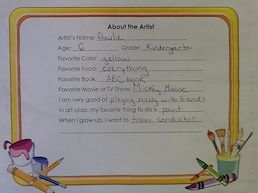 About the Artist
Artist's Name: Paulie
Age: 6 Grade: Kindergarten
Favorite Color: yellow
Favorite Food: everything
Favorite Book: ABC book
Favorite Movie or TV Show: Mickey Mouse
I am very good at playing nicely with friends
In art class, my favorite thing to do is paint
When I grow up, I want to train conductor